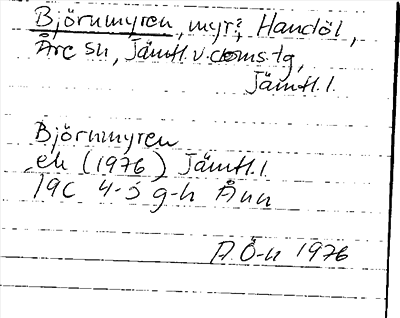 Björnmyren, myr, Handöl,
Åre sn, Jämtl. v. doms.tg,
Jämtl. l.
Björnmyren
ek (1976) Jämtl. l.
19C 4-5 g-h Ånn
A Ö-n 1976